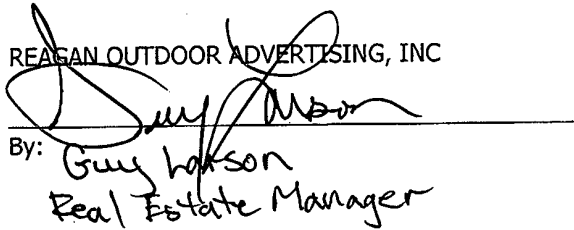 REAGAN OUTDOOR ADVERTISING, INC
Guy Larson
By: Guy Larson
Real Estate Manager